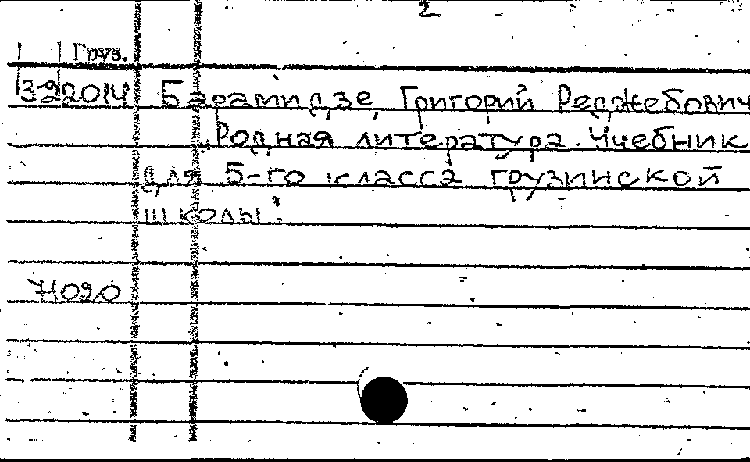 2
Груз.
322014 Барамидзе, Григорий Реджебович
Родная литература. Учебник
для 5-го класса грузинской
школы.
71020